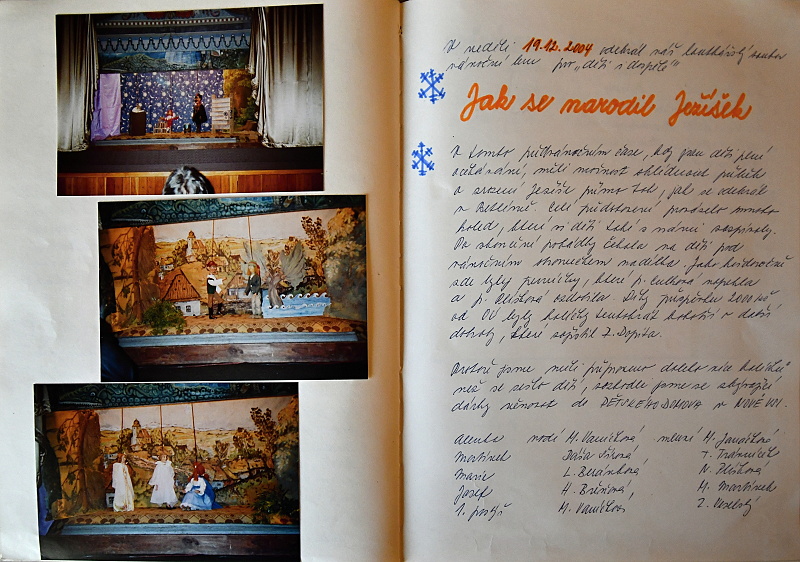 V neděli 19.12.2004 odehrál náš loutkářský soubor
vánoční hru pro „děti i dospělé"
Jak se narodil Ježíšek
V tomto předvánočním čase, kdy jsou děti plné
očekávání, měli možnost shlédnout příběh
o zrození Ježíše přímo tak, jak se odehrál
v Betlémě. Celé představení provázelo mnoho
koled, které si děti také s námi zazpívaly.
Po skončení pohádky čekala na děti pod
vánočním stromečkem nadílka. Jako každoročně
zde byly perníčky, které p. napekla
a p. ozdobila. Díky příspěvku 2000 Kč
od OÚ byly balíčky tentokrát bohatší o další
dobroty, které zajistil Z. Dopita.
Protože jsme měli připraveno daleko více balíčků
než se sešlo dětí, rozhodli jsme se zbývající
dárky věnovat do DĚTSKÉHO DOMOVA v NOVÉ VSI.
vodí H. Vaníčková mluví H. Janáčková
Martínek Dáša T.
Marie L. N.
Josef H. H. Martínek
1. H. Z. Veselý